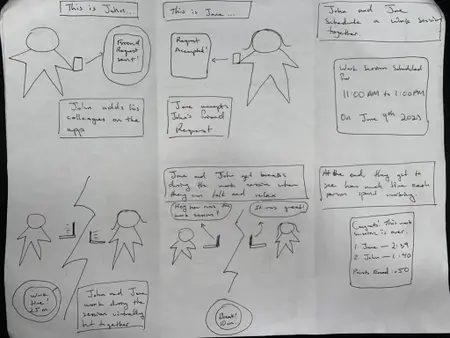 This is John...
Friend
Request
sent!
John adds his
colleagues on the
app
This is Jane...
Request
Accepted!
Jane accepts
John's friend
Request
John and Jane
Schedule a work session
together.
Work Session Scheduled
for
11:00 AM to 1:00 PM
On June 9th 2023
Work
time!
25 m
John and Jane
work during the
session virtually
but together
Jane and John get breaks
during the work session where
they can talk and relax
Hey how was the
work session?
It was great!
Break!
10 m
At the end, they get to
see how much time each
person spent working
Congrats! This work
session is over.
1. Jane — 2:39
2. John — 1:40
Points Earned: +50